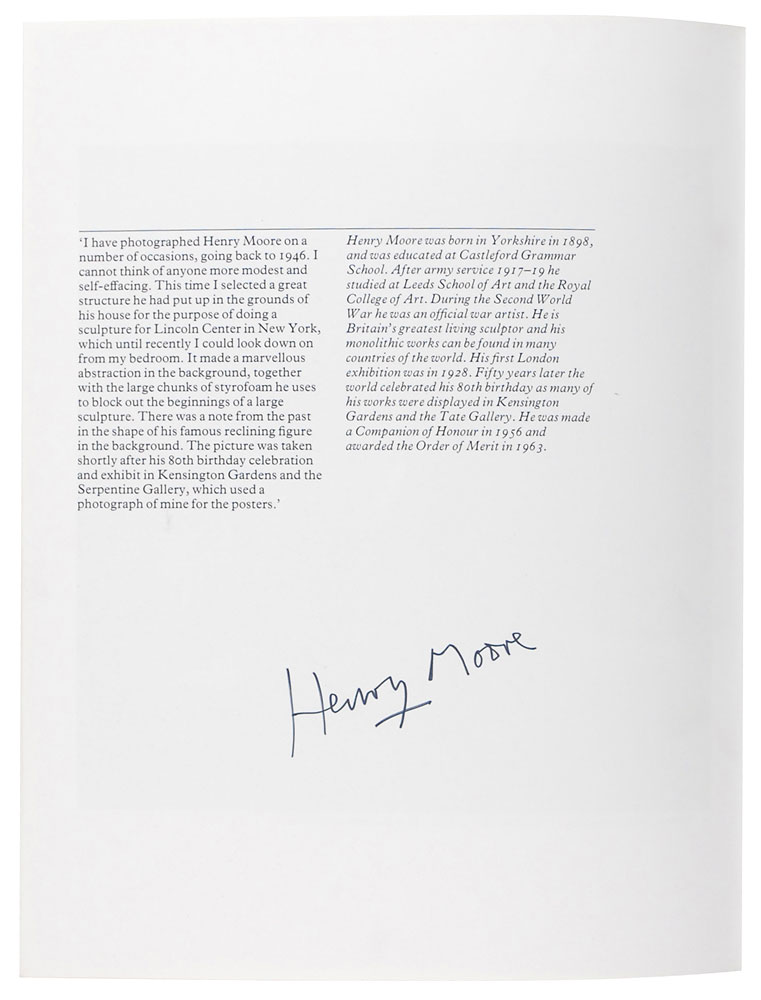 'I have photographed Henry Moore on a
number of occasions, going back to 1946. I
cannot think of anyone more modest and
self-effacing. This time I selected a great
structure he had put up in the grounds of
his house for the purpose of doing a
sculpture for Lincoln Center in New York,
which until recently I could look down on
from my bedroom. It made a marvellous
abstraction in the background, together
with the large chunks of styrofoam he uses
to block out the beginnings of a large
sculpture. There was a note from the past
in the shape of his famous reclining figure
in the background. The picture was taken
shortly after his 80th birthday celebration
and exhibit in Kensington Gardens and the
Serpentine Gallery, which used a
photograph of mine for the posters.'
Henry Moore was born in Yorkshire in 1898,
and was educated at Castleford Grammar
School. After army service 1917–19 he
studied at Leeds School of Art and the Royal
College of Art. During the Second World
War he was an official war artist. He is
Britain's greatest living sculptor and his
monolithic works can be found in many
countries of the world. His first London
exhibition was in 1928. Fifty years later the
world celebrated his 80th birthday as many of
his works were displayed in Kensington
Gardens and the Tate Gallery. He was made
a Companion of Honour in 1956 and
awarded the Order of Merit in 1963.
Henry Moore